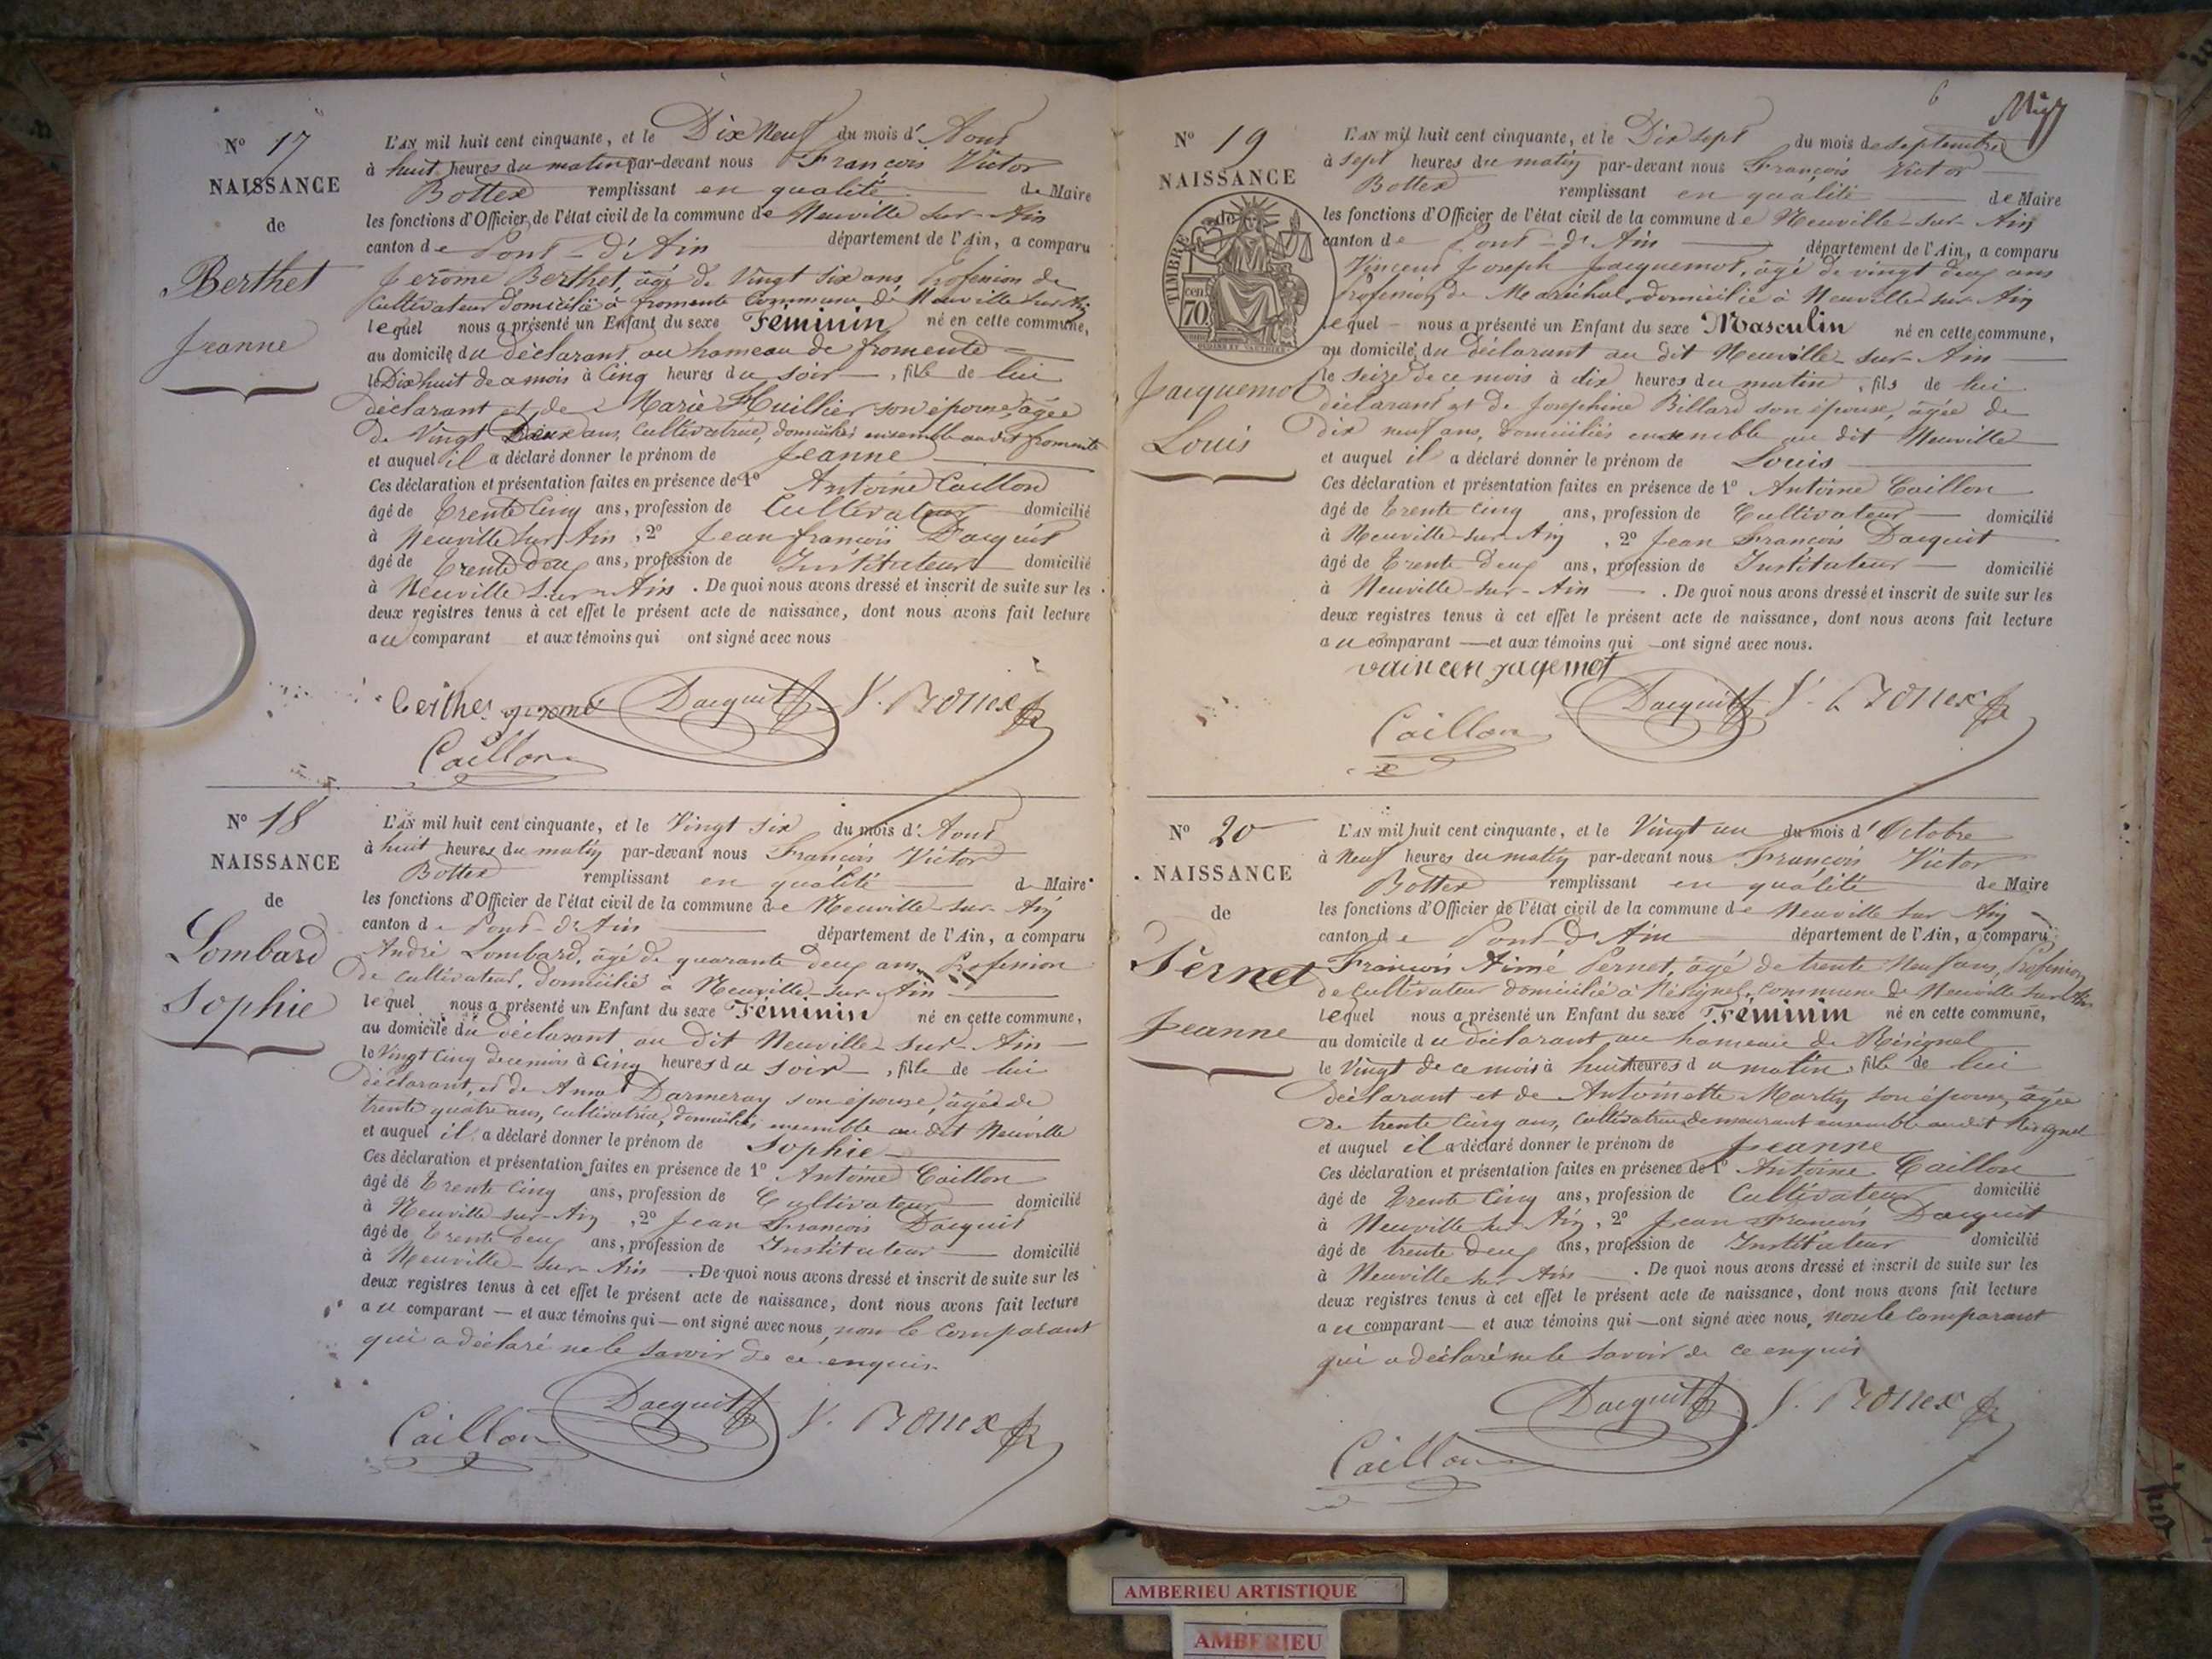 N° 17
NAISSANCE
de
Berthet
Jeanne
L'AN mil huit cent cinquante, et le Dix Neuf du mois d'Aout
à huit heures du matin par-devant nous François Victor
Bottex remplissant en qualité de Maire
les fonctions d'Officier de l'état civil de la commune de Neuville sur Ain
canton de Pont-d'Ain département de l'Ain, a comparu
Jerôme Berthet, âgé de Vingt six ans, Profession de
Cultivateur domicilié à fromente Commune de Neuville sur Ain
lequel nous a présenté un Enfant du sexe Féminin né en cette commune,
au domicile du déclarant, au hameau de fromente
le Dix huit de ce mois à Cinq heures du soir, fille de lui
déclarant et de Marie Huillier son épouse âgée
de Vingt Deux ans, Cultivatrice, domiciliés ensemble au dit fromente
et auquel il a déclaré donner le prénom de Jeanne
Ces déclaration et présentation faites en présence de 1° Antoine Caillon
âgé de Trente Cinq ans, profession de Cultivateur domicilié
à Neuville sur Ain, 2° Jean françois Dacquit
âgé de Trente deux ans, profession de Instituteur domicilié
à Neuville sur Ain. De quoi nous avons dressé et inscrit de suite sur les
deux registres tenus à cet effet le présent acte de naissance, dont nous avons fait lecture
au comparant et aux témoins qui ont signé avec nous
Dacquit V. Bottex
Caillon
N° 18
NAISSANCE
de
Lombard
Sophie
L'AN mil huit cent cinquante, et le Vingt six du mois d'Aout
à huit heures du matin par-devant nous François Victor
Bottex remplissant en qualité de Maire
les fonctions d'Officier de l'état civil de la commune de Neuville-sur-Ain
canton de Pont-d'Ain département de l'Ain, a comparu
André Lombard, âgé de quarante deux ans, Profession
de cultivateur, domicilié à Neuville-sur-Ain
lequel nous a présenté un Enfant du sexe Féminin né en cette commune,
au domicile du déclarant au dit Neuville-sur-Ain
le Vingt Cinq de ce mois à Cinq heures du soir, fille de lui
déclarant, et de Anna Darmeray son épouse, âgée de
trente quatre ans, cultivatrice, domiciliés ensemble au dit Neuville
et auquel il a déclaré donner le prénom de Sophie
Ces déclaration et présentation faites en présence de 1° Antoine Caillon
âgé de Trente Cinq ans, profession de Cultivateur domicilié
à Neuville-sur-Ain, 2° Jean François Dacquit
âgé de Trente deux ans, profession de Instituteur domicilié
à Neuville-sur-Ain. De quoi nous avons dressé et inscrit de suite sur les
deux registres tenus à cet effet le présent acte de naissance, dont nous avons fait lecture
au comparant et aux témoins qui ont signé avec nous, non le Comparant
qui a déclaré ne le savoir de ce enquis.
Dacquit V. Bottex
Caillon
6
N° 19
NAISSANCE
TIMBRE
cen
70
Jacquemot
Louis
L'AN mil huit cent cinquante, et le Dix sept du mois de septembre
à sept heures du matin par-devant nous François Victor
Bottex remplissant en qualité de Maire
les fonctions d'Officier de l'état civil de la commune de Neuville-sur-Ain
canton de Pont-d'Ain département de l'Ain, a comparu
Vincent Joseph Jacquemot, âgé de vingt deux ans
Profession de Maréchal, domicilié à Neuville-sur-Ain
lequel nous a présenté un Enfant du sexe Masculin né en cette commune,
au domicile du déclarant au dit Neuville-sur-Ain
le seize de ce mois à dix heures du matin, fils de lui
déclarant et de Josephine Billard son épouse, âgée de
dix neuf ans, domiciliés ensemble au dit Neuville
et auquel il a déclaré donner le prénom de Louis
Ces déclaration et présentation faites en présence de 1° Antoine Caillon
âgé de Trente Cinq ans, profession de Cultivateur domicilié
à Neuville-sur-Ain, 2° Jean François Dacquit
âgé de Trente deux ans, profession de Instituteur domicilié
à Neuville-sur-Ain. De quoi nous avons dressé et inscrit de suite sur les
deux registres tenus à cet effet le présent acte de naissance, dont nous avons fait lecture
au comparant et aux témoins qui ont signé avec nous.
vaincen jaqemot
Dacquit V. Bottex
Caillon
N° 20
NAISSANCE
de
Pernet
Jeanne
L'AN mil huit cent cinquante, et le Vingt un du mois d'Octobre
à Neuf heures du matin par-devant nous François Victor
Bottex remplissant en qualité de Maire
les fonctions d'Officier de l'état civil de la commune de Neuville sur Ain
canton de Pont-d'Ain département de l'Ain, a comparu
François Aimé Pernet, âgé de trente Neuf ans, Profession
de Cultivateur domicilié à Résignel, Commune de Neuville sur Ain
lequel nous a présenté un Enfant du sexe Féminin né en cette commune,
au domicile du déclarant au hameau de Résignel
le Vingt de ce mois à huit heures du matin, fille de lui
déclarant et de Antoinette Martin son épouse, âgée
de trente Cinq ans, Cultivatrice demeurant ensemble au dit Résignel
et auquel il a déclaré donner le prénom de Jeanne
Ces déclaration et présentation faites en présence de 1° Antoine Caillon
âgé de Trente Cinq ans, profession de Cultivateur domicilié
à Neuville sur Ain, 2° Jean François Dacquit
âgé de trente deux ans, profession de Instituteur domicilié
à Neuville sur Ain. De quoi nous avons dressé et inscrit de suite sur les
deux registres tenus à cet effet le présent acte de naissance, dont nous avons fait lecture
au comparant et aux témoins qui ont signé avec nous, non le Comparant
qui a déclaré ne le savoir de ce enquis
Dacquit V. Bottex
Caillon
AMBERIEU ARTISTIQUE
AMBERIEU